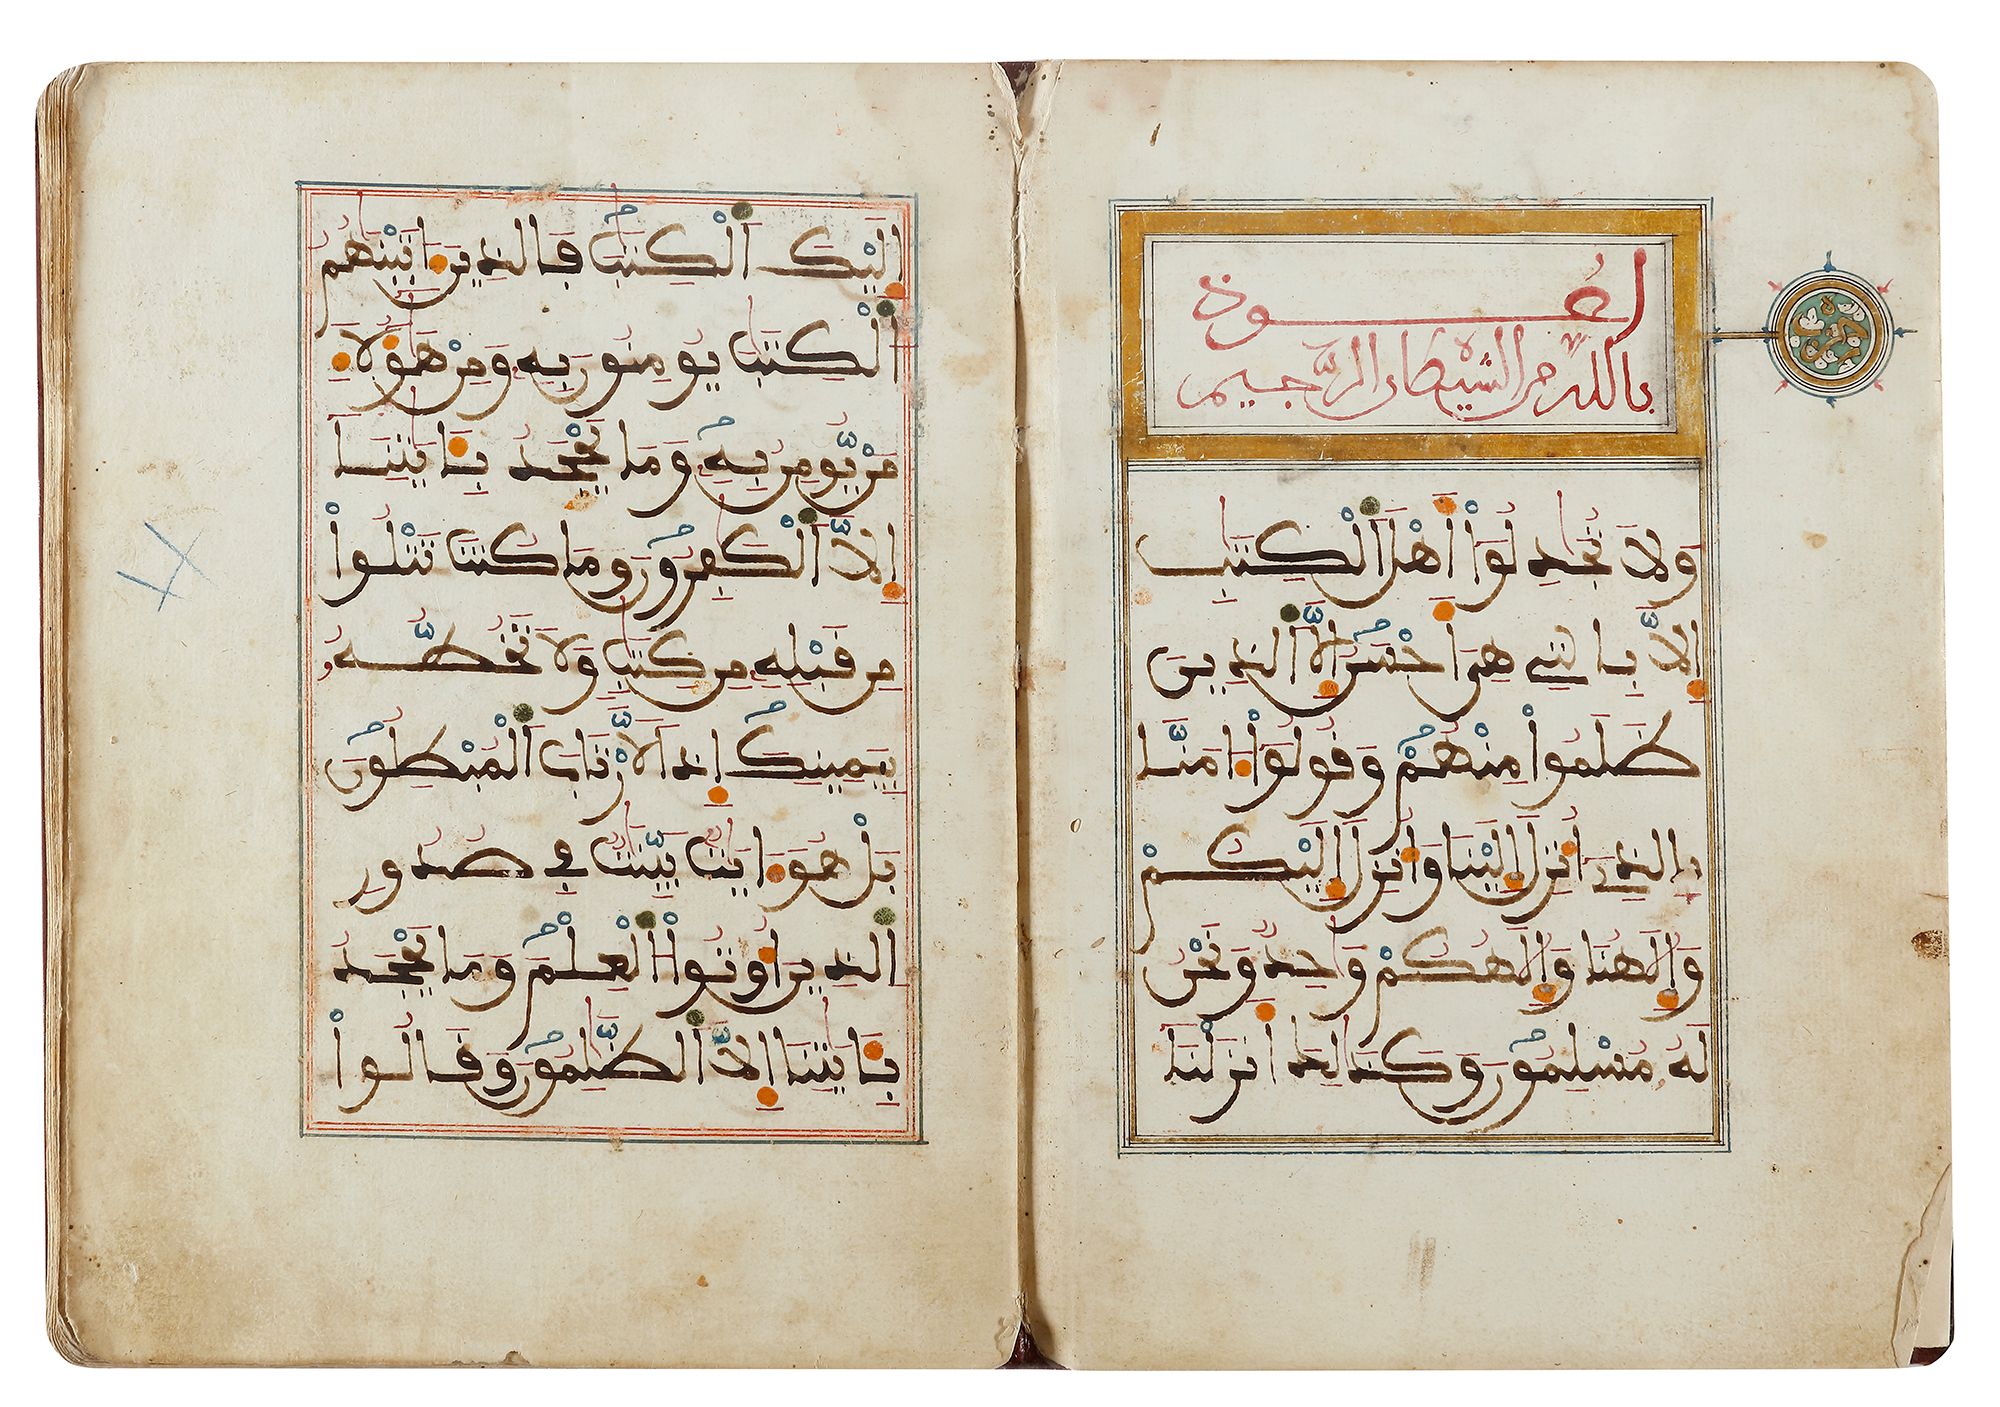 اعوذ
بالله من الشيطان الرجيم
وَلَا تُجَٰدِلُوٓاْ أَهْلَ اَ۬لْكِتَٰبِ
إِلَّا بِالتِے هِيَ أَحْسَنُ إِلَّا اَ۬لذِينَ
ظَلَمُواْ مِنْهُمْ وَقُولُوٓاْ ءَامَنَّا
بِالذِے أُنزِلَ إِلَيْنَا وَأُنزِلَ إِلَيْكُمْ
وَإِلَٰهُنَا وَإِلَٰهُكُمْ وَٰحِدٌ وَنَحْنُ
لَهُۥ مُسْلِمُونَ وَكَذَٰلِكَ أَنزَلْنَا
إِلَيْكَ اَ۬لْكِتَٰبَ فَالذِينَ ءَاتَيْنَٰهُمُ
اُ۬لْكِتَٰبَ يُومِنُونَ بِهِۦ وَمِنْ هَٰٓؤُلَآءِ
مَنْ يُّومِنُ بِهِۦ وَمَا يَجْحَدُ بِـَٔايَٰتِنَآ
إِلَّا اَ۬لْكَٰفِرُونَ وَمَا كُنتَ تَتْلُواْ
مِن قَبْلِهِۦ مِن كِتَٰبٍ وَلَا تَخُطُّهُۥ
بِيَمِينِكَ إِذاً لَّارْتَابَ اَ۬لْمُبْطِلُونَ
بَلْ هُوَ ءَايَٰتٌ بَيِّنَٰتٌ فِے صُدُورِ
اِ۬لذِينَ أُوتُواْ اُ۬لْعِلْمَ وَمَا يَجْحَدُ
بِـَٔايَٰتِنَآ إِلَّا اَ۬لظَّٰلِمُونَ وَقَالُواْ